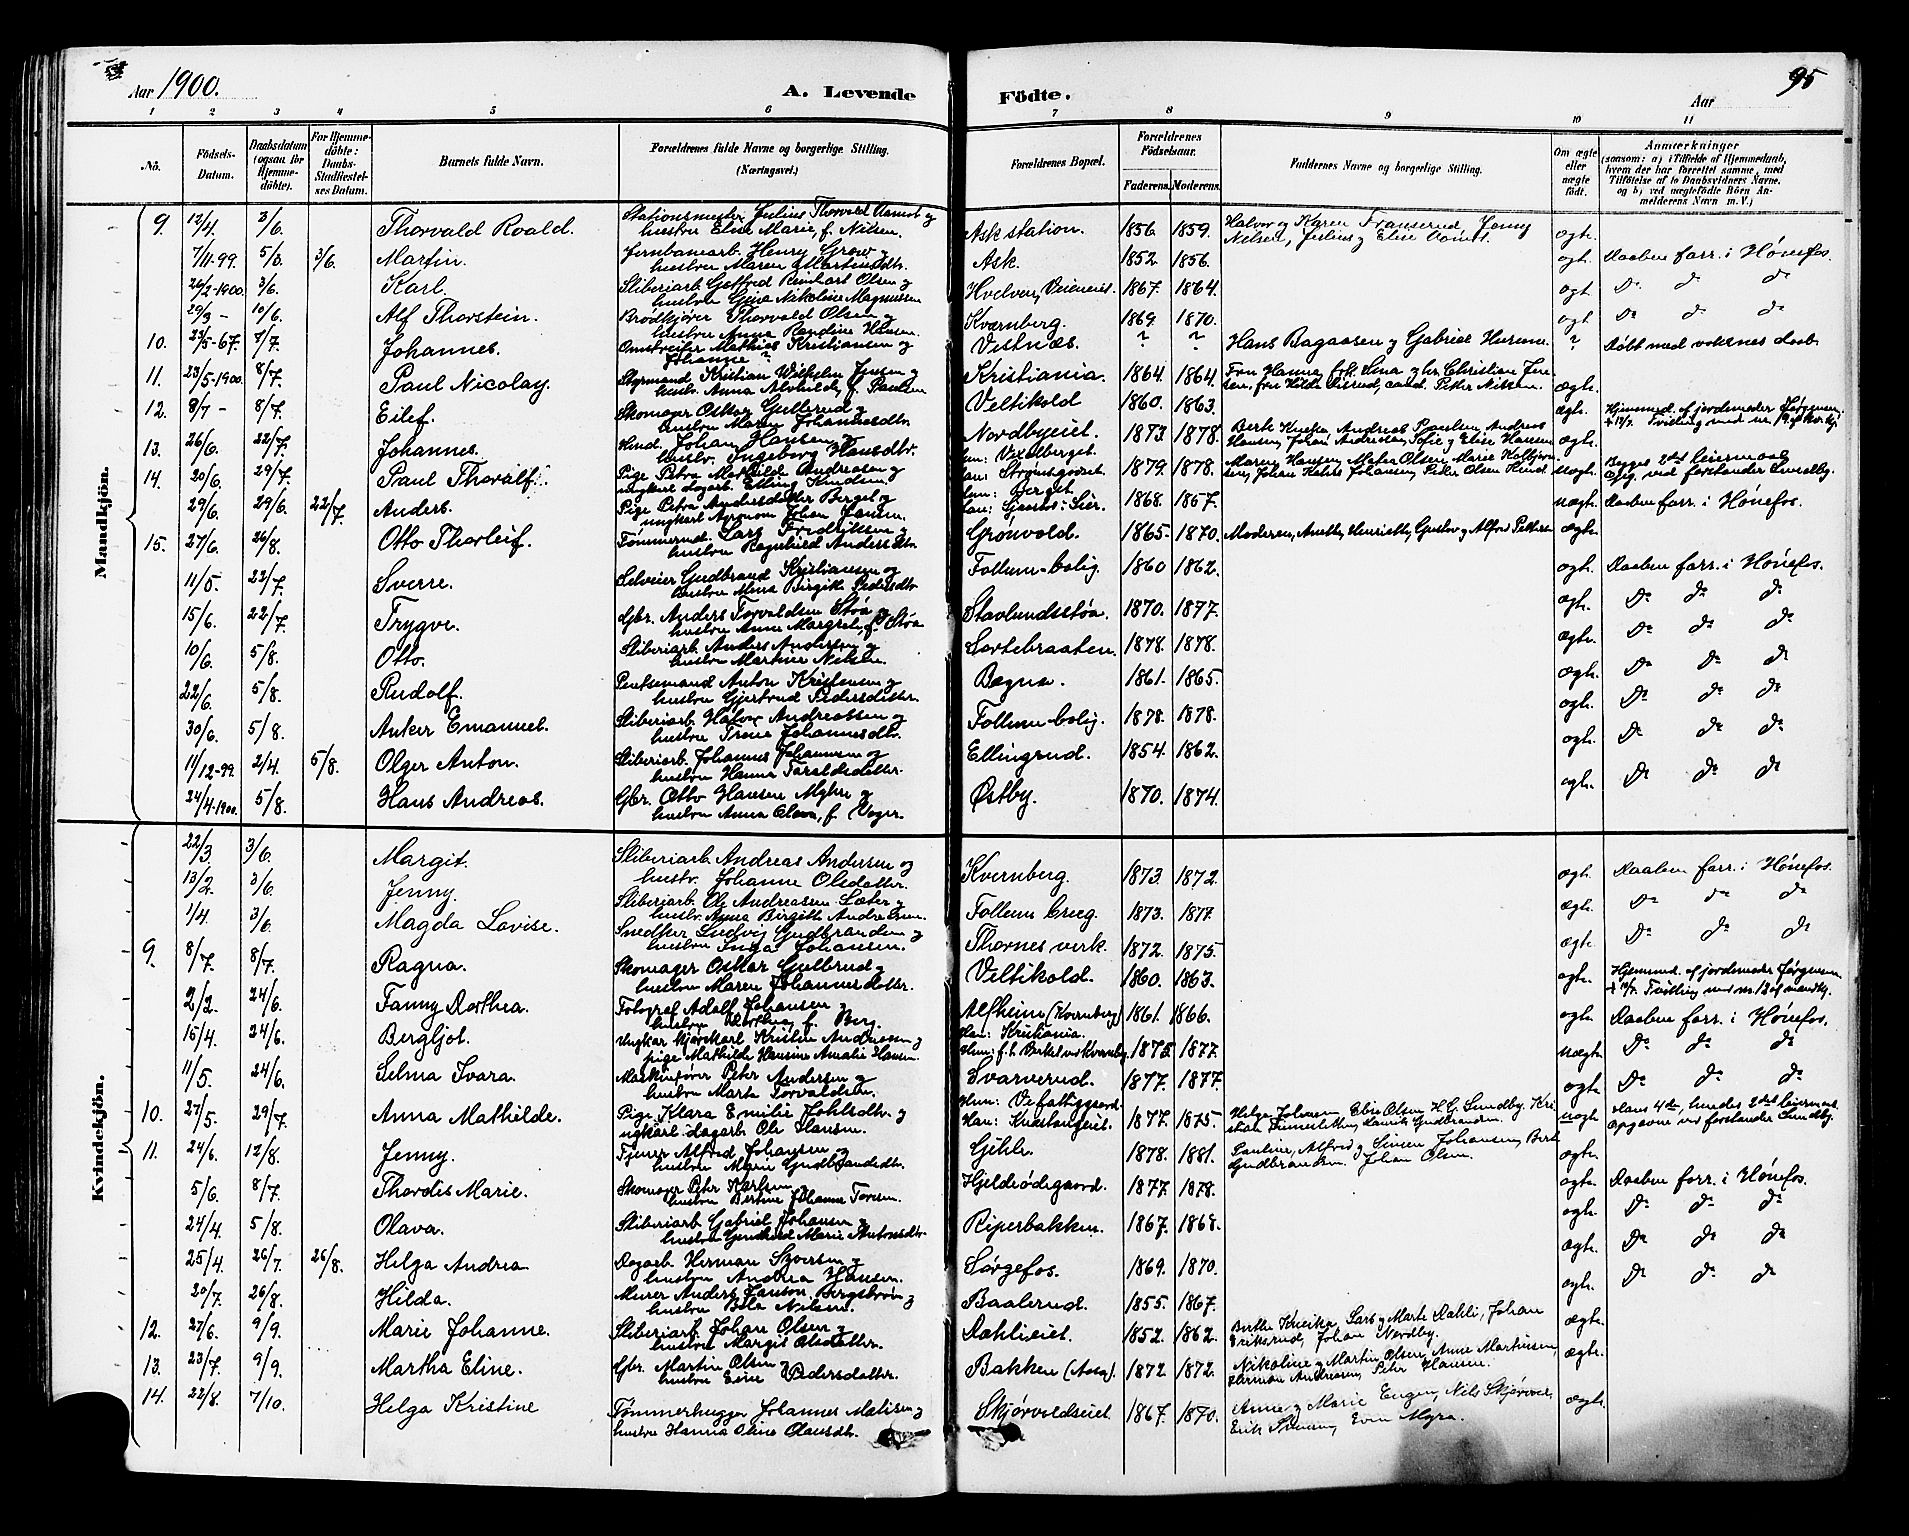 Aar 1900. A. Levende Födte. Aar 95
1 2 3 4 5 6 7 8 9 10 11
No. Födsels-Datum. Daabsdatum (ogsaa for Hjemmedöbte). For Hjemmedöbte: Daabs-Stadfæstelses Datum. Barnets fulde Navn. Forældrenes fulde Navne og borgerlige Stilling. (Næringsvei.) Forældrenes Bopæl. Forældrenes Födselsaar. Faderens. Moderens. Faddernes Navne og borgerlige Stilling. Om ægte eller uægte födt. Anmærkninger (saasom: a) i Tilfælde af Hjemmedaab, hvem der har forrettet samme, med Tilföielse af to Daabsvidners Navne, og b) ved uægtefödte Börn Anmelderens Navn m. V.)
Mandkjön.
9. 12/4. 3/6. Thorvald Roald. Stationsmester Julius Thorvald Aamot og hustru Elise Marie, f. Nilsen. Ask station. 1856. 1859. Halvor og Karen Franserud, Jenny Nilsen, Julius og Elise Aamot. ægte.
7/11-99. 5/3. 3/6. Martin. Jernbanearb. Henry Grow og hustru Maren Martinsdtr. Ask. 1852. 1856. ægt. Daaben forr. i Hønefos.
26/2-1900. 3/6. Karl. Sliberiarb. Gotfred Reinhart Olsen og hustru Gina Nikoline Magnussen Hvelven, Veieneiet. 1867. 1864. ægt. Do do do
29/3 - 10/6. Alf Thorstein. Brödkjører Thorvald Olsen og hustru Anna Randine Hansen. Kværnberg. 1869. 1870. ægt. Do do do
10. 22/5-67. 1/7. Johannes. Omstreifer Mathias Kristiansen og Johanne ? Vestnæs. ? ? Hans Bagaasen og Gabriel Hurum. ? Døbt med voksnes daab.
11. 23/5-1900. 8/7. Paul Nicolay. Styrmand Kristian Wilhelm Jensen og hustr. Anna Alvhilde, f. Paulsen Kristiania. 1864. 1864. ægte.
12. 8/7 - 8/7. Eilef. Skomager Oskar Gulbrud og hustru Maren Johannesdtr. Veltikold 1860. 1863. ægte. Hjemmed. af jordemoder Jørgensen.
13. 26/6. 22/7. Johannes. Husmd. Johan Hansen og hustr. Ingeborg Hansdtr. Nordbyeiet. 1873. 1878. ægte.
14. 20/6. 29/7. Paul Thoralf. Pige Petra Mathilde Andreasen og ungkarl dagarb. Elling Knudsen. 1879. 1878. uægte.
29/6. 29/6. 22/7. Anders. Pige Petra Andersdatter Berget og ungkarl Agronom Johan Jansen. Hun: Berget. 1868. 1857. uægt. Daaben forr. i Hønefos.
15. 27/6. 26/8. Otto Thorleif. Tømmermd. Lars Fredriksen og hustru Ragnhild Andersdtr. Grönvold. 1865. 1870. Moderen, Anette, Henriette, Gustav og Alfred Pettersen ægte.
11/5. 22/7. Sverre. Selveier Gudbrand Kristiansen og hustru Mina Birgitte Pedersdtr. Follum-bolig. 1860 1862. ægt. Daaben forr. i Hønefos.
15/6. 22/7. Trygve. Gbr. Anders Torvaldsen Støa og hustru Anne Margret, f. Støa Stavlundsstøa. 1870. 1877. ægte. Do do do
10/6. 5/8. Otto. Sliberiarb. Anders Andersen og hustru Martine Nilsen. Sortebraaten. 1878. 1878. ægte. Do do do
22/6. 5/8. Rudolf. Anton Kristensen og hustru Gjertrud Pedersdatter. Begna. 1861. 1865. ægte. Do do do
30/6. 5/8. Anker Emanuel. Sliberiarb. Halvor Andreassen og hustru Trine Johannesdtr. Follum-bolig. 1878. 1878. ægte. Do do do
11/12-99. 2/4. 5/8. Olger Anton. Sliberiarb. Johannes Johannesen og hustru Hanna Taraldsdatter. Ellingrud. 1854. 1862. ægt. Do do do
24/4-1900. 5/8. Hans Andreas. Gbr. Otto Hansen Myhre og hustru Anna Olava, f. Vager. Østby. 1870. 1874. ægte. Do do do
Kvindekjön.
22/3. 3/6. Margit. Sliberiarb. Andreas Andersen og hustr. Johanne Olsdatter. Kvernberg. 1873. 1872. ægt. Daaben forr. i Hønefos.
13/2. 3/6. Jenny. Sliberiarb. Ole Andreassen Sæter og hustr. Anna Birgitte Andreassen. Follum brug. 1873. 1877. ægte. Do do do
1/4. 3/6. Magda Lovise. Snedker Ludvig Gudbrandsen og hustru Inga Johansen. Thornes verk. 1872. 1875. ægte. Do do do
9. 8/7. 8/7. Ragna. Skomager Oskar Gulbrud og hustru Maren Johannesdatter. Veltikold. 1860. 1863. ægt. Hjemmed. af jordemoder Jørgensen + 12/7. Tvilling med nr. 12 af mandkj.
2/2. 24/6. Fanny Dorthea. Fotograf Adolf Johansen og hustru Dorthea, f. Berg. Alfheim (Kvernberg) 1861. 1866. ægt. Daaben forr. i Hønefos.
15/4. 24/6. Bergljot. Ungkar kjørekarl Kristian Andreassen og pige Mathilde Hansine Amalie Hansen. Han: Kristiania. 1875 1877. uægte. Do do do
11/5. 24/6. Selma Ivara. Maskinfører Peter Andersen og hustru Marte Torvaldsen. Svarverud. 1877. 1877. ægt. Do do do
10. 27/5. 29/7. Anna Mathilde. Pige Klara Emilie Johlsdtr. og ungkarl dagarb. Ole Hansen. 1877. 1875. uægte. Hans 4de, hendes 2det leiermaal. Opgave ved forstander Sundby.
11. 24/6. 12/8. Jenny. Tjener Alfred Johansen og hustru Marie Gudbrandsdtr. Gihle. 1878. 1881. Pauline, Alfred og Simen Johansen, Berte Gudbrandsen. Johan Olsen. ægte.
5/6. 8/7. Thordis Marie. Skomager Peter Karlsen og hustru Bertine Johanne Toresen. Hjeldsødegaard. 1877. 1878. ægte. Daaben forr. i Hønefos.
24/4. 5/8. Olava. Sliberiarb. Gabriel Johansen og hustru Gunhild Marie Antonsdtr. Riperbakken. 1867. 1868. ægte. Do do do
25/4. 26/7. 26/8. Helga Andrea. Dagarb. Herman Syversen og hustru Andrea Hansen. Sørgefos. 1869. 1870. ægte. Do do do
20/7. 26/8. Hilda. Murer Anders Janson Bergström og hustru Bela Nilsen. Baalerud. 1855. 1867. ægte. Do do do
12. 27/6. 9/9. Marie Johanne. Sliberiarb. Johan Olsen og hustru Margit Olsdatter. Dahlieiet. 1852. 1862. Berthe Kneika, Lars og Marte Dahli, Johan Eriksrud, Johan Nordby. ægte.
13. 23/7. 9/9. Martha Eline. Gbr. Martin Olsen og hustru Eine Pedersdatter. Bakken (Aasa). 1872. 1872. Nikoline og Martin Olsen, Anne Martinsen, Herman Andreasen, Peter Hansen. ægte.
14. 22/8. 7/10. Helga Kristine Tømmerhugger Johannes Matisen og hustru Hanna Oline Olausdtr. Skjørvoldseiet. 1867. 1870. Anne og Marie Engen, Nils Skjørvold, Erik Simensen, Even Myra. ægte.